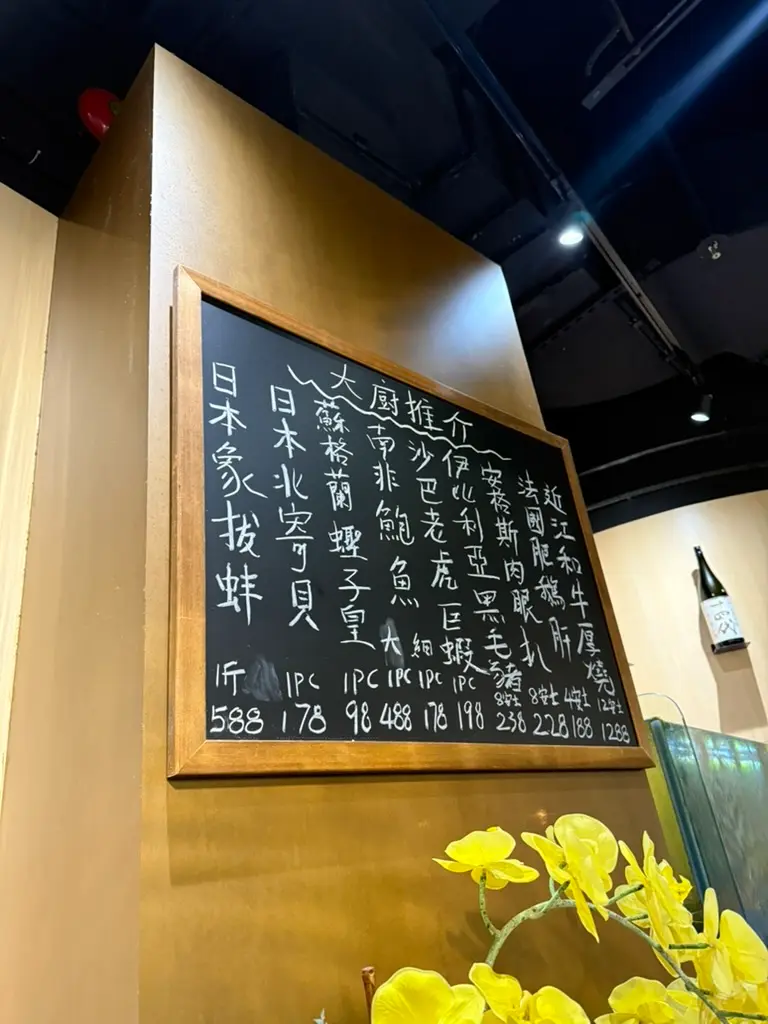 大廚推介
日本象拔蚌 1斤 588
日本北寄貝 1PC 178
蘇格蘭蟶子皇 1PC 98
南非鮑魚 大 1PC 488
細 1PC 178
沙巴老虎巨蝦 1PC 198
伊比利亞黑毛豬 8安士 238
安格斯肉眼扒 8安士 228
法國肥鵝肝 4安士 188
近江和牛厚燒 12安士 1288
十四代